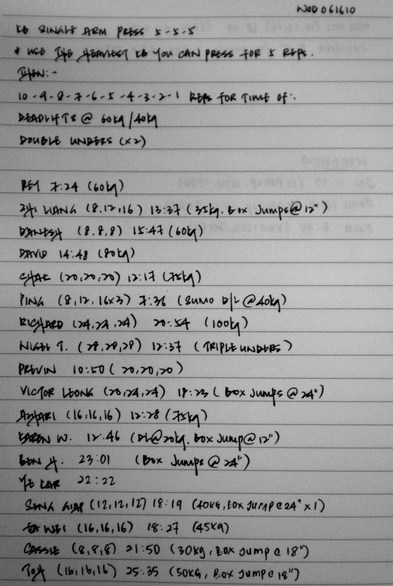 WOD 061610
KB SINGLE ARM PRESS 5-5-5
* USE THE HEAVIEST KB YOU CAN PRESS FOR 5 REPS.
THEN:-
10-9-8-7-6-5-4-3-2-1 REPS FOR TIME OF:
DEADLIFTS @ 60kg/40kg
DOUBLE UNDERS (x2)
REY 7:24 (60kg)
ZHI LIANG (8,12,16) 13:37 (35kg. Box Jumps@12")
DANESH (8,8,8) 15:47 (60kg)
DAVID 14:48 (80kg)
CHAE (20,20,20) 12:17 (75kg)
PING (8,12,16x3) 7:36 (SUMO D/L @40kg)
RICHARD (24,24,24) 20:54 (100kg)
NIGEL T. (28,28,28) 12:37 (TRIPLE UNDERS)
PREVIN 10:50 (20,20,20)
VICTOR LEONG (20,24,24) 18:23 (Box Jumps @ 24")
AZHARI (16,16,16) 12:28 (75kg)
KAREN W. 12:46 (DL@20kg. Box Jump@12")
BEN H. 23:01 (Box Jumps @ 24")
YE KAR 22:22
(12,12,12) 18:19 (40KG, BOX JUMP@24" x1)
(16,16,16) 18:27 (45KG)
CASSIE (8,8,8) 21:50 (30KG, BOX JUMP @ 18")
(16,16,16) 25:35 (50KG, BOX JUMP @ 18")